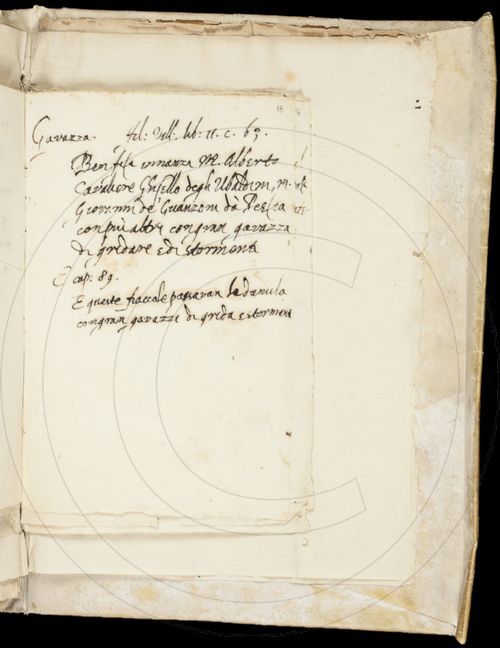 Gavazza. fil: Vill: lib: 11. c. 63.
Ben si fa innanza M. Alberto
Cavaliere Ghisello degli Ubaldini, M.
Giovanni de' Guanzoni da Pescia
con più altri con gran gavazza
di gridare e di stormenti
E cap: 89.
E queste fiaccole passavan la
con gran gavazze di grida e stormenti